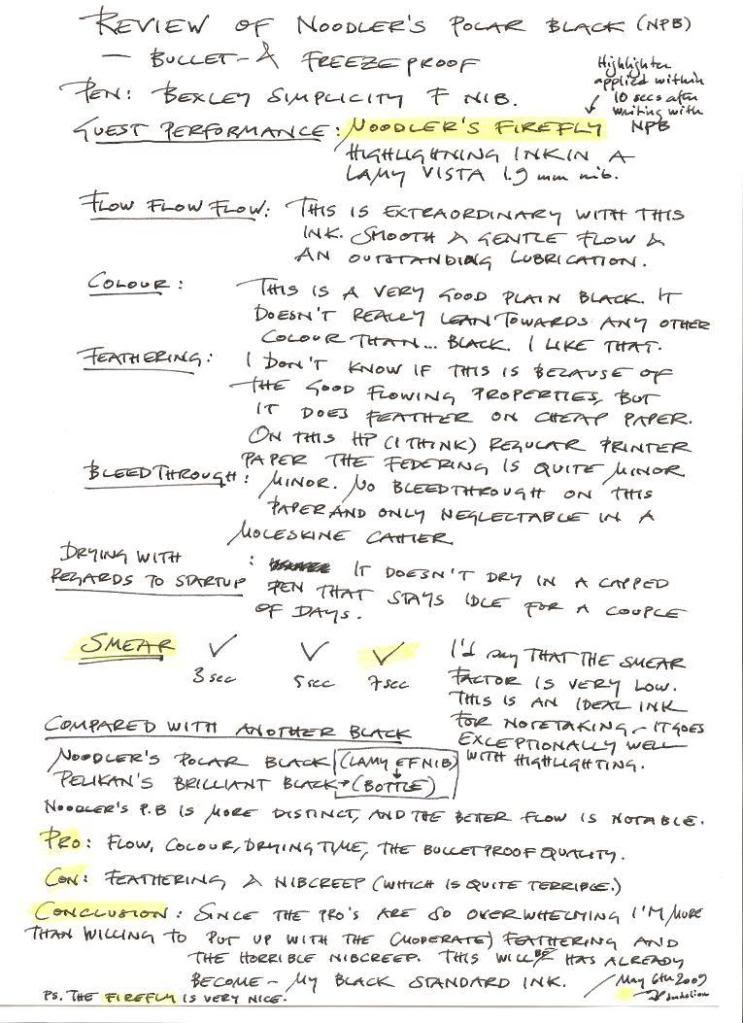 REVIEW OF NOODLER'S POLAR BLACK (NPB)
— BULLET- & FREEZEPROOF
Highlighter
applied within
10 secs after
writing with
NPB
PEN: BEXLEY SIMPLICITY F NIB.
GUEST PERFORMANCE: NOODLER'S FIREFLY
HIGHLIGHTNING INK IN A
LAMY VISTA 1.9 mm nib.
FLOW FLOW FLOW: THIS IS EXTRAORDINARY WITH THIS
INK. SMOOTH & GENTLE FLOW &
AN OUTSTANDING LUBRICATION.
COLOUR: THIS IS A VERY GOOD PLAIN BLACK. IT
DOESN'T REALLY LEAN TOWARDS ANY OTHER
COLOUR THAN... BLACK. I LIKE THAT.
FEATHERING: I DON'T KNOW IF THIS IS BECAUSE OF
THE GOOD FLOWING PROPERTIES, BUT
IT DOES FEATHER ON CHEAP PAPER.
ON THIS HP (I THINK) REGULAR PRINTER
PAPER THE FEDERING IS QUITE MINOR
BLEEDTHROUGH: MINOR. NO BLEEDTHROUGH ON THIS
PAPER AND ONLY NEGLECTABLE IN A
MOLESKINE CAHIER
DRYING WITH
REGARDS TO STARTUP : IT DOESN'T DRY IN A CAPPED
PEN THAT STAYS IDLE FOR A COUPLE
OF DAYS.
SMEAR ✓ ✓ ✓
3 sec 5 sec 7 sec
I'd say THAT THE SMEAR
FACTOR IS VERY LOW.
THIS IS AN IDEAL INK
FOR NOTETAKING - IT GOES
EXCEPTIONALLY WELL
WITH HIGHLIGHTING.
COMPARED WITH ANOTHER BLACK
NOODLER'S POLAR BLACK (LAMY EF NIB)
PELIKAN'S BRILLIANT BLACK → (BOTTLE)
NOODLER'S P.B IS MORE DISTINCT, AND THE BETER FLOW IS NOTABLE.
PRO: FLOW, COLOUR, DRYING TIME, THE BULLETPROOF QUALITY.
CON: FEATHERING & NIBCREEP (WHICH IS QUITE TERRIBLE.)
CONCLUSION: SINCE THE PRO'S ARE SO OVERWHELMING I'M MORE
THAN WILLING TO PUT UP WITH THE (MODERATE) FEATHERING AND
THE HORRIBLE NIBCREEP. THIS WILL BE HAS ALREADY
BECOME - MY BLACK STANDARD INK.
May 6th 2009
dandelion
PS. THE FIREFLY IS VERY NICE.